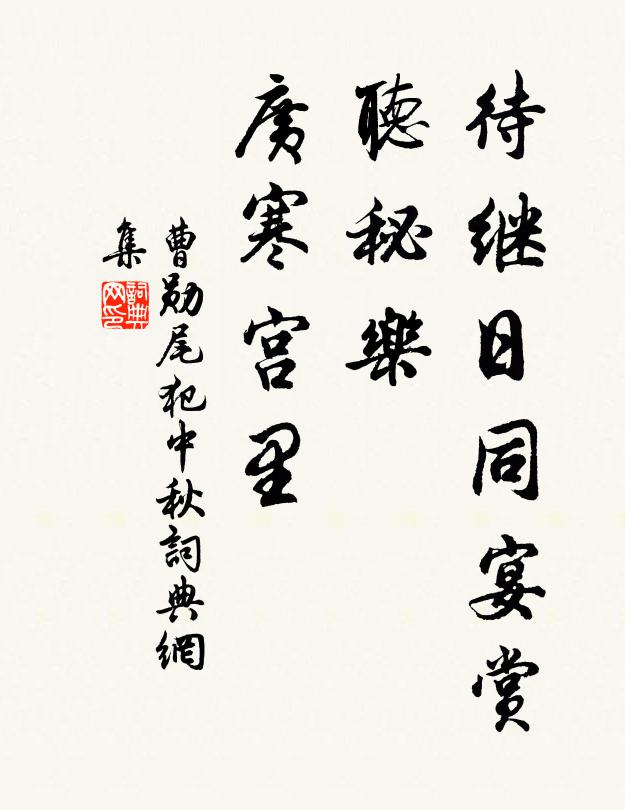 待继日同宴赏
聽秘樂
廣寒宫里
曹勛尾犯中秋詞典網
集
詞典
网印